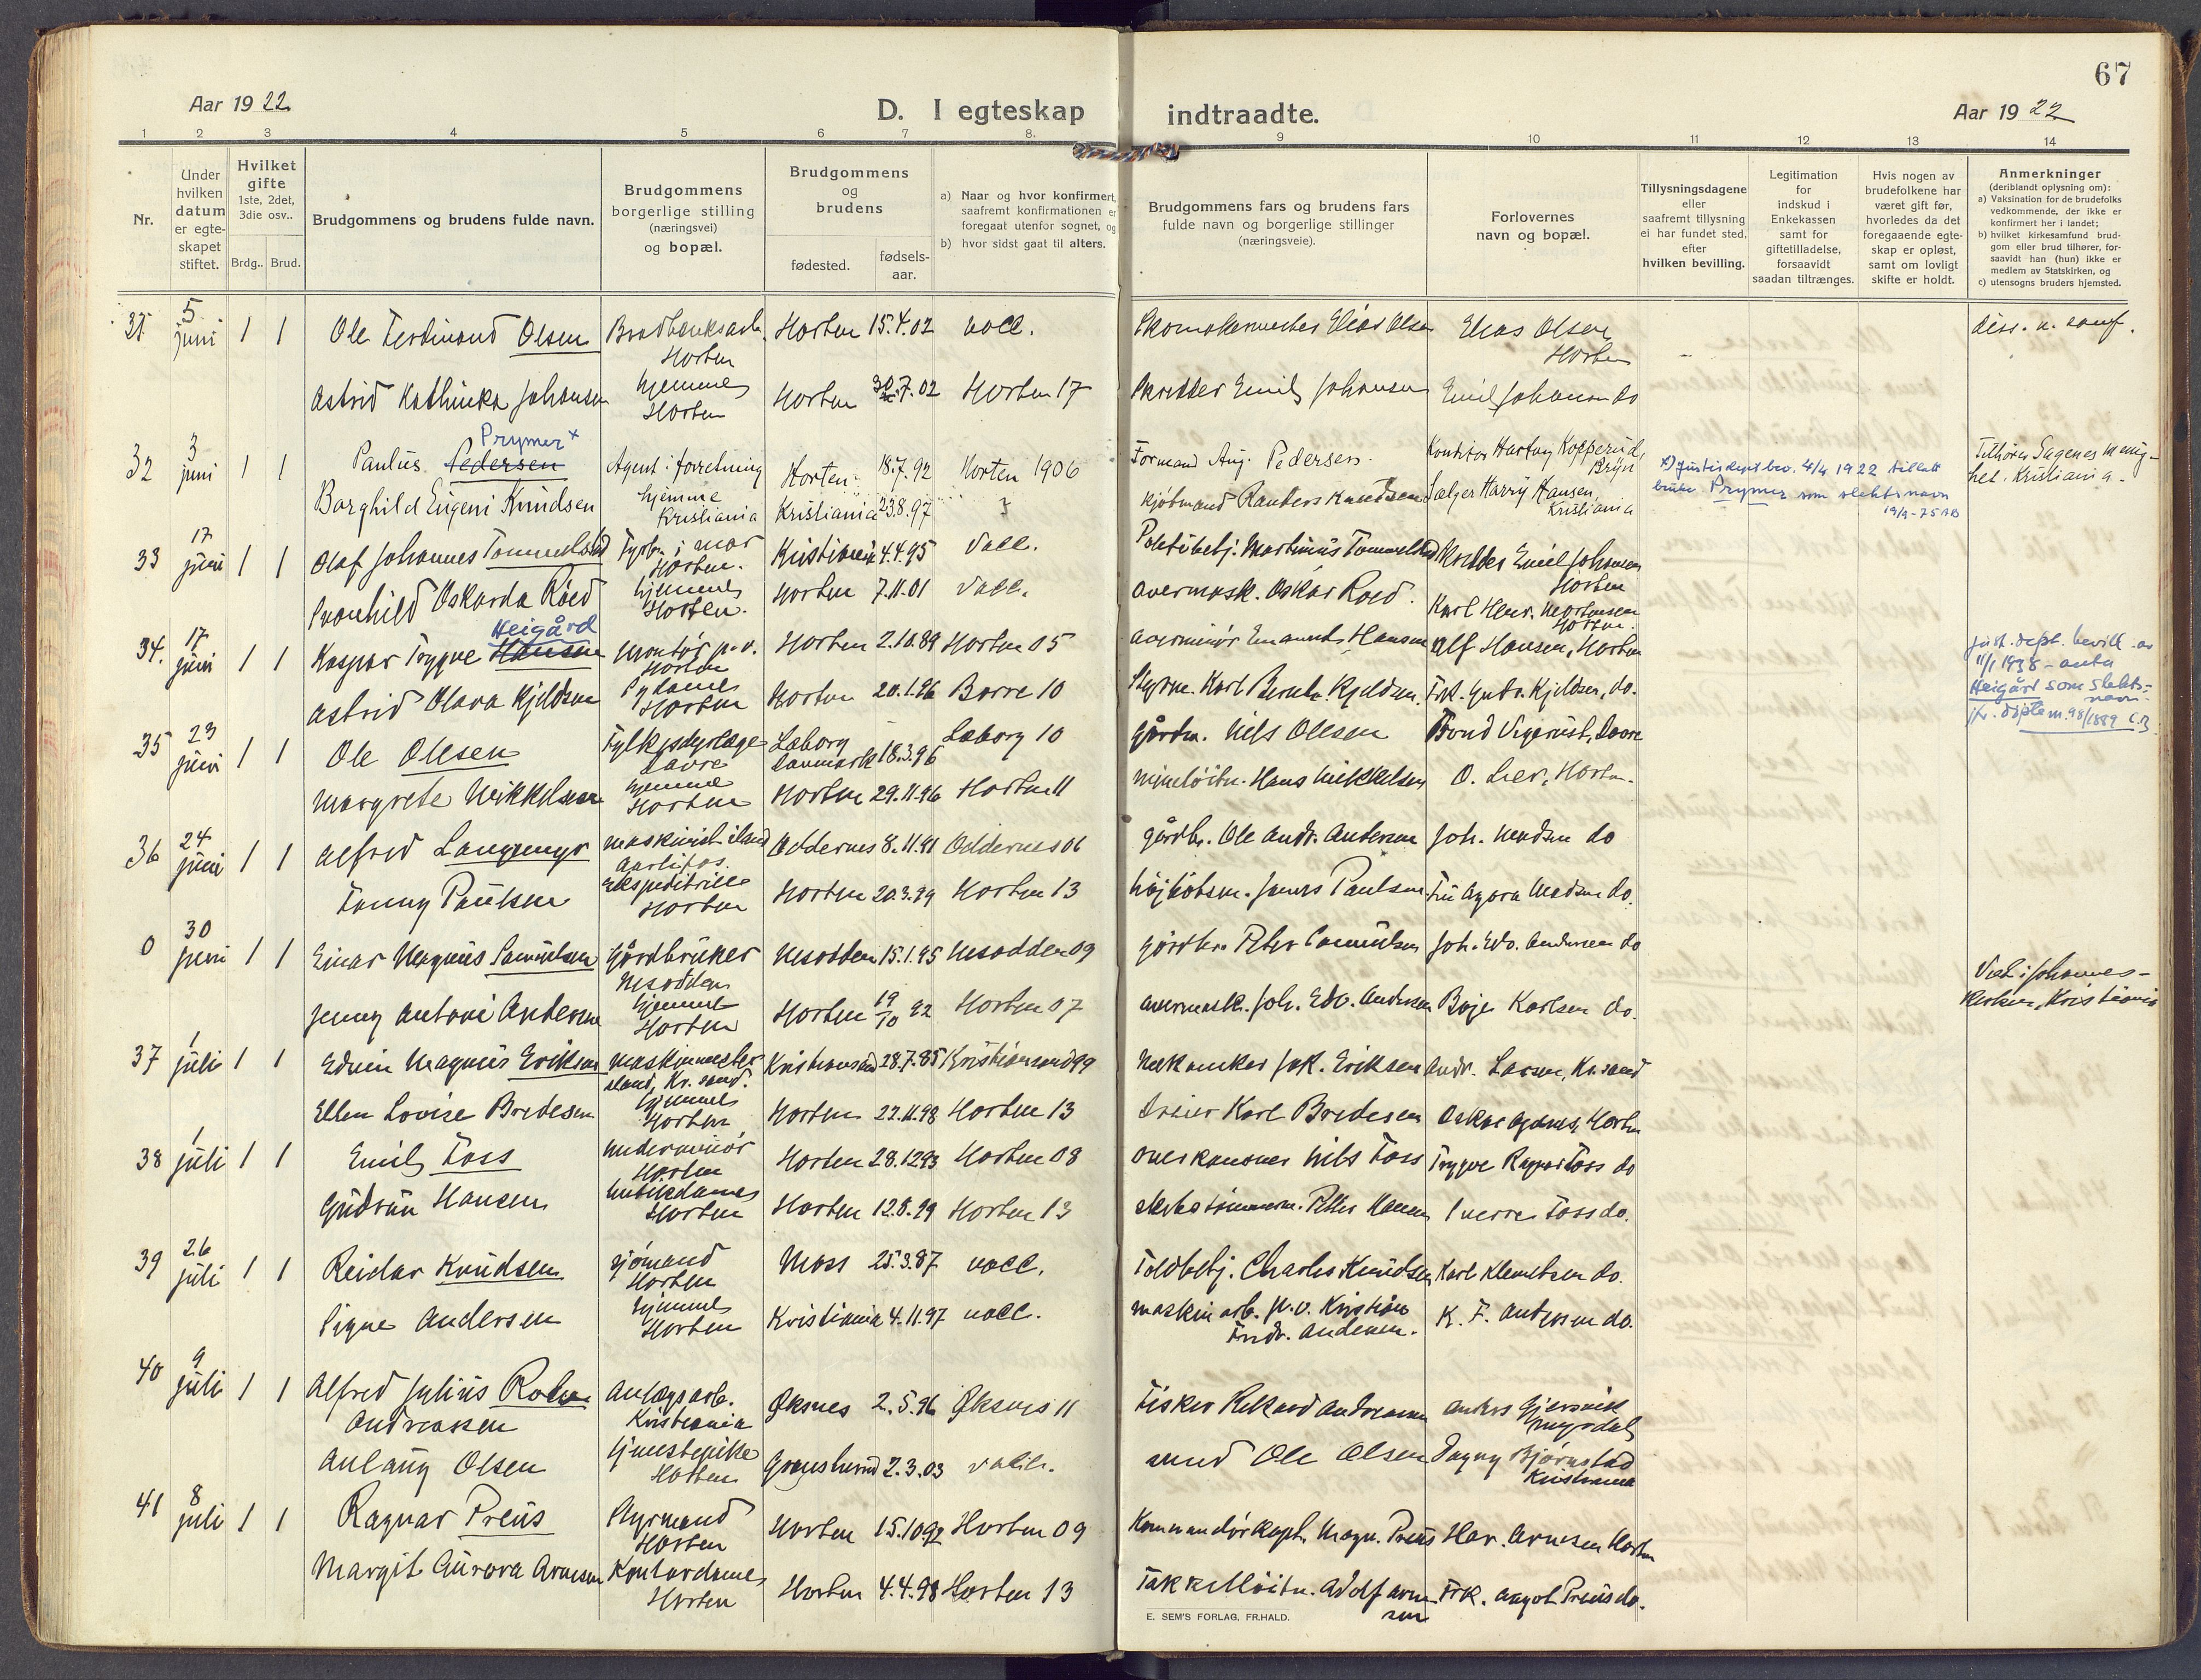 67
Aar 1922
D. I egteskap indtraadte.
Aar 1922
1 2 3 4 5 6 7 8. 9 10 11 12 13 14
Nr.
Under hvilken datum er egteskapet stiftet.
Hvilket gifte 1ste, 2det, 3die osv..
Brdg.. Brud.
Brudgommens og brudens fulde navn.
Brudgommens borgerlige stilling (næringsvei) og bopæl.
Brudgommens og brudens
fødested.
fødsels-aar.
a) Naar og hvor konfirmert, saafremt konfirmationen er foregaat utenfor sognet, og
b) hvor sidst gaat til alters.
Brudgommens fars og brudens fars fulde navn og borgerlige stillinger (næringsveie).
Forlovernes navn og bopæl.
Tillysningsdagene eller saafremt tillysning ei har fundet sted, efter hvilken bevilling.
Legitimation for indskud i Enkekassen samt for giftetilladelse, forsaavidt saadan tiltrænges.
Hvis nogen av brudefolkene har været gift før, hvorledes da det foregaaende egteskap er opløst, samt om lovligt skifte er holdt.
Anmerkninger (deriblandt oplysning om):
a) Vaksination for de brudefolks vedkommende, der ikke er konfirmert her i landet;
b) hvilket kirkesamfund brudgom eller brud tilhører, forsaavidt han (hun) ikke er medlem av Statskirken, og
c) utensogns bruders hjemsted.
31 5 juni 1 1 Ole Ferdinand Olsen Horten 15.4.02 vacc. Skomakermester Elias Olsen Elias Olsen Horten
Horten
Astrid Kathinka Johansen hjemme Horten Horten 30.7.02 Horten 17 Skredder Emil Johansen Emil Johansen do
Prymer x
32 3 juni 1 1 Paulus Pedersen Agent i forretning Horten 18.7.92 Horten 1906 Formand Aug. Pedersen Kontorist Hartvig Kopperud, Bryn x) Justisdept bev. 4/4 1922 tillatt bruke Prymer som slektsnavn Tilhører Sagenes menighet, Kristiania.
Borghild Eugeni Knudsen hjemme Kristiania Kristiania 23.8.97 kjøbmand Randers Knudsen Sælger Harry Hansen, Kristiania
33 17 juni 1 1 Olaf Johannes Tommelstad Horten. Kristiania 4.4.95 vacc. Politibetj. Martinius Tommelstad Skredder Emil Johansen Horten
Svanhild Oskarda Röed hjemme Horten. Horten 7.11.01 vacc. Overmask. Oskar Roed. Karl Henr. Mortensen Horten.
Heigård
34. 17 juni 1 1 Kaspar Trygve Hansen Montør Horten Horten 2.10.89 Horten 05 Overminør Emanuel Hansen Alf Hansen, Horten Just. dept. bevill. av 11/1 1938 - anta Heigård som slektsnavn
Astrid Olava Kjeldsen Sydame Horten Horten 20.1.96 Borre 10 Styrm. Karl Bernh. Kjeldsen Frk. Gudr. Kjeldsen, do.
35 23 juni 1 1 Ole Olesen Fylkesdyrlæge Danmark 18.3.96 gårdm. Nils Olesen
Margrete Mikkelsen hjemme Horten Horten 29.11.96 Horten 11 mineløitn. Hans Mikkelsen O. Lier, Horten.
36 24 juni 1 1 Alfred Langemyr Oddernes 8.11.91 Oddernes 06 gårdbr. Ole Andr. Andersen Joh. Madsen do
Fanny Paulsen Ekspeditrice Horten Horten 20.3.99 Horten 13 James Paulsen
0 30 juni 1 1 Einar Magnus Samuelsen Gårdbruker Nesodden Nesodden 15.1.95 Nesodden 09 gårdbr. Peter Samuelsen Joh. Edv. Andersen do Viet i Johanneskirken, Kristiania
Jenny Antoni Andersen hjemme Horten Horten 19/10 92 Horten 07 overmask. Joh. Edv. Andersen Karlsen do.
37 1 juli 1 1 Edvin Magnus Eriksen Maskinmester Kr.sand. Kristiansand 28.7.85 Kristiansand 99 Mekaniker Jak. Eriksen Andr. Larsen, Kr.sand
Ellen Lovise Bredesen hjemme Horten Horten 22.11.98 Horten 13 Dreier Karl Bredesen
38 1 juli 1 1 Emil Foss Underminør Horten Horten 28.12.93 Horten 08 Overkanoner Nils Foss
Gudrun Hansen Horten Horten 12.8.99 Horten 13 Petter Hansen Sverre Foss do.
39 26 juli 1 1 Reidar Knudsen sjømand Horten Moss 25.3.87 vacc. Toldbetj. Charles Knudsen Karl Klemetsen do.
Signe Andersen hjemme Horten Kristiania 4.11.97 vacc. maskinarb. p.v. Kristian Fredr. Andersen. K. F. Andersen do.
40 9 juli 1 1 Alfred Julius Andreassen Anlægsarb. Kristiania Øksnes 2.5.96 Øksnes 11 Fisker Rikard Andreassen Myrdal
Anlaug Olsen tjenestepike Horten 2.3.03 Ole Olsen Dagny Bjørnstad Kristiania
41 8 juli 1 1 Ragnar Preus Styrmand Horten Horten 15.10.92 Horten 09 Kommandörkapt. Magn. Preus Har. Arnesen Horten
Margit Aurora Arnesen Kontordame Horten Horten 4.4.98 Horten 13 Takkelløitn. Adolf Arnesen Frk. Preus do.
E. SEM'S FORLAG, FR.HALD.